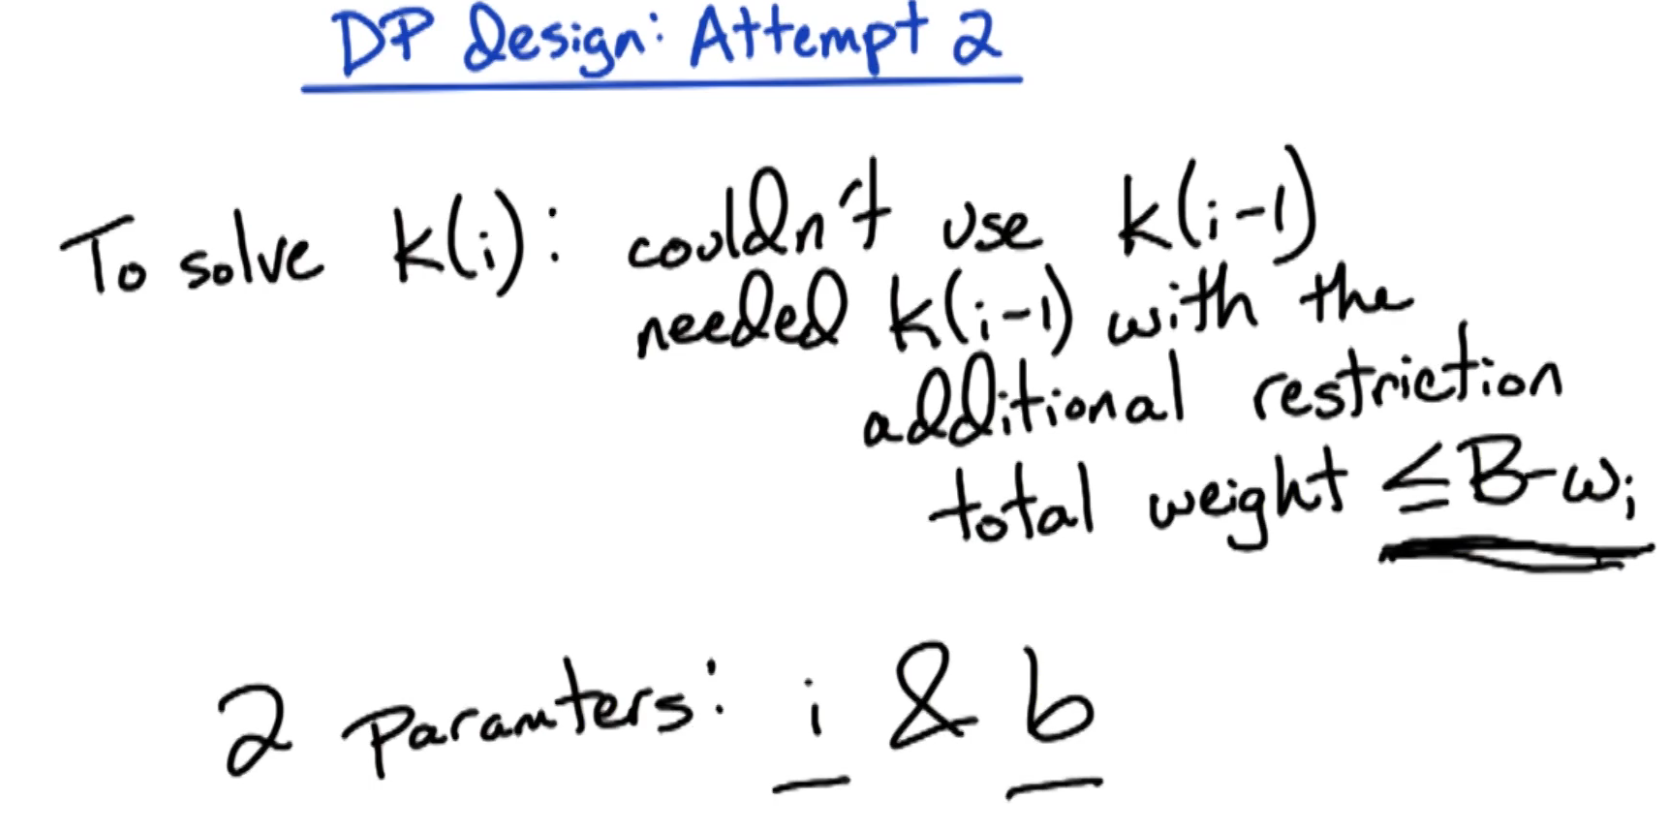 DP Design: Attempt 2
To solve K(i): couldn't use K(i-1)
needed K(i-1) with the
additional restriction
total weight ≤ B-wᵢ
2 paramters: i & b